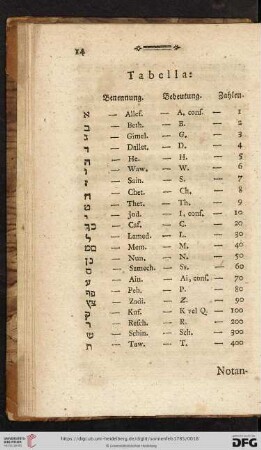 14
Tabella:
Benennung. Bedeutung. Zahlen.
א — Allef. — A, conſ. — 1
ב — Beth. — B. — 2
ג — Gimel. — G. — 3
ד — Dallet. — D. — 4
ה — He. — H. — 5
ו — Waw. — W. — 6
ז — Sain. — S. — 7
ח — Chet. — Ch. — 8
ט — Thet. — Th. — 9
י — Jod. — I, conſ. — 10
כך — Caf. — C. — 20
ל — Lamed. — L. — 30
מם — Mem. — M. — 40
נן — Nun. — N. — 50
ס — Samech. — Ss. — 60
ע — Ain. — Ai, conſ. — 70
פף — Peh. — P. — 80
צץ — Zadi. — Z. — 90
ק — Kof. — K vel Q. — 100
ר — Reſch. — R. — 200
ש — Schin. — Sch. — 300
ת — Taw. — T. — 400
Notan-
https://digi.ub.uni-heidelberg.de/diglit/sonnenfels1785/0018
© Universitätsbibliothek Heidelberg
gefördert durch die
DFG